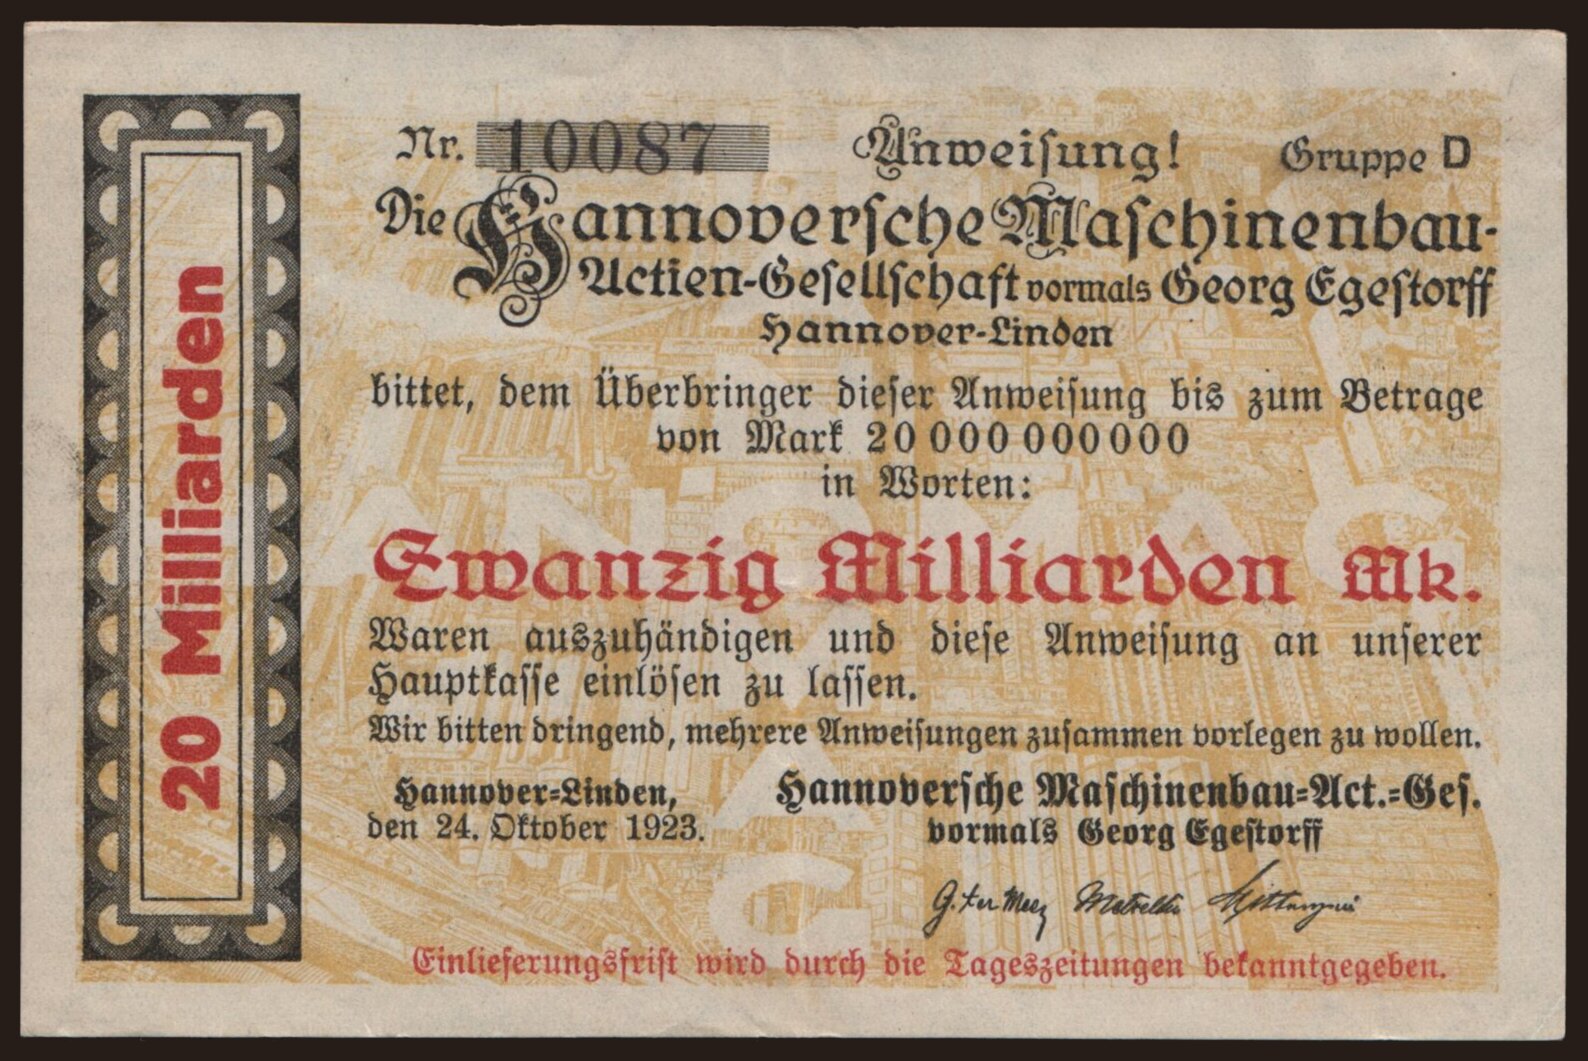 20 Milliarden
Nr. 10087 Anweisung! Gruppe D
Die Hannoversche Maschinenbau-
Actien-Gesellschaft vormals Georg Egestorff
Hannover-Linden
bittet, dem Überbringer dieser Anweisung bis zum Betrage
von Mark 20 000 000 000
in Worten:
Zwanzig Milliarden Mk.
Waren auszuhändigen und diese Anweisung an unserer
Hauptkasse einlösen zu lassen.
Wir bitten dringend, mehrere Anweisungen zusammen vorlegen zu wollen.
Hannover-Linden,
den 24. Oktober 1923.
Hannoversche Maschinenbau-Act.-Ges.
vormals Georg Egestorff
G. ter Meer
Einlieferungsfrist wird durch die Tageszeitungen bekanntgegeben.